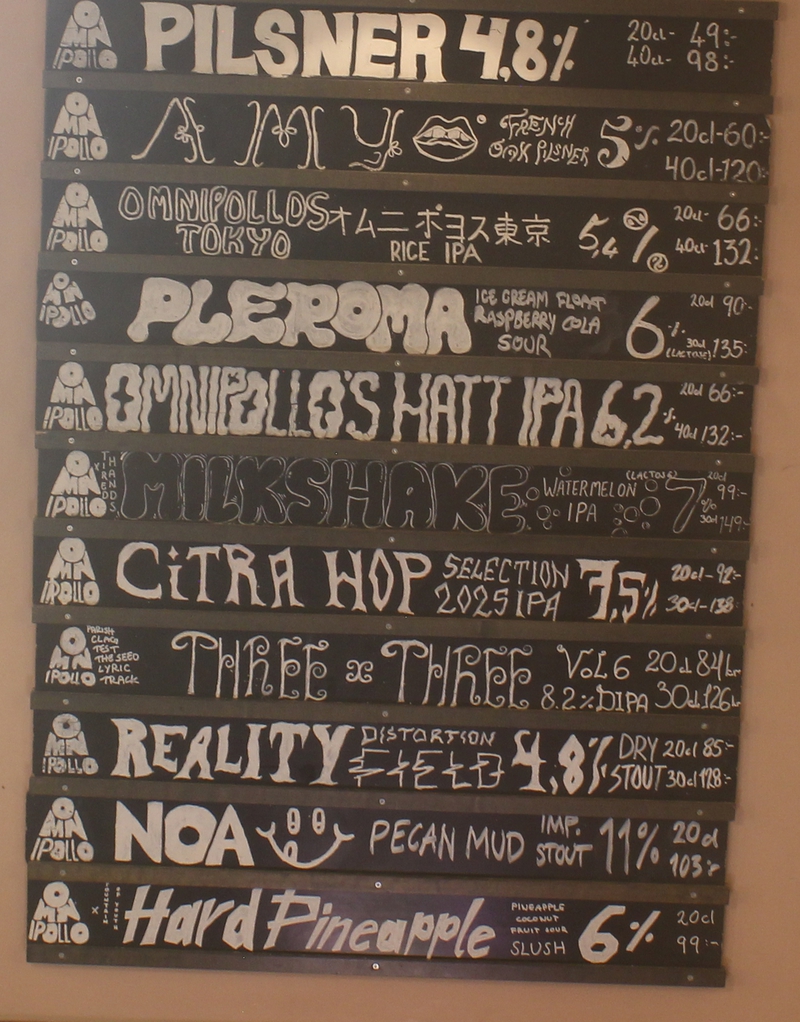 OMNIPOLLO PILSNER 4,8% 20cl- 49:-
40cl- 98:-
OMNIPOLLO AMY FRENCH OAK PILSNER 5% 20cl-60:-
40cl-120:-
OMNIPOLLO OMNIPOLLOS オムニポヨス東京 5,4% 20cl- 66:-
TOKYO RICE IPA 40cl- 132:-
OMNIPOLLO PLEROMA ICE CREAM FLOAT 6% 20cl 90:-
RASPBERRY COLA
SOUR (LACTOSE) 30cl 135:-
OMNIPOLLO OMNIPOLLO'S HATT IPA 6,2% 20cl 66:-
40cl 132:-
OMNIPOLLO x TIRED HANDS MILKSHAKE WATERMELON (LACTOSE) 7% 20cl 99:-
IPA 30cl 149:-
OMNIPOLLO CiTRA HOP SELECTION 7,5% 20cl- 92:-
2025 IPA 30cl- 138:-
OMNIPOLLO PARISH
CLAG
TEST
THE SEED
LYRIC
TRACK
THREE x THREE VOL 6 20cl 84kr
8.2% DIPA 30cl 126kr
OMNIPOLLO REALITY DISTORTION 4,8% DRY 20cl 85:-
FIELD STOUT 30cl 128:-
OMNIPOLLO NOA PECAN MUD IMP. 11% 20cl
STOUT 103:-
OMNIPOLLO x FOUNTAIN OF YOUTH Hard Pineapple PINEAPPLE 6% 20cl
COCONUT
FRUIT SOUR 99:-
SLUSH